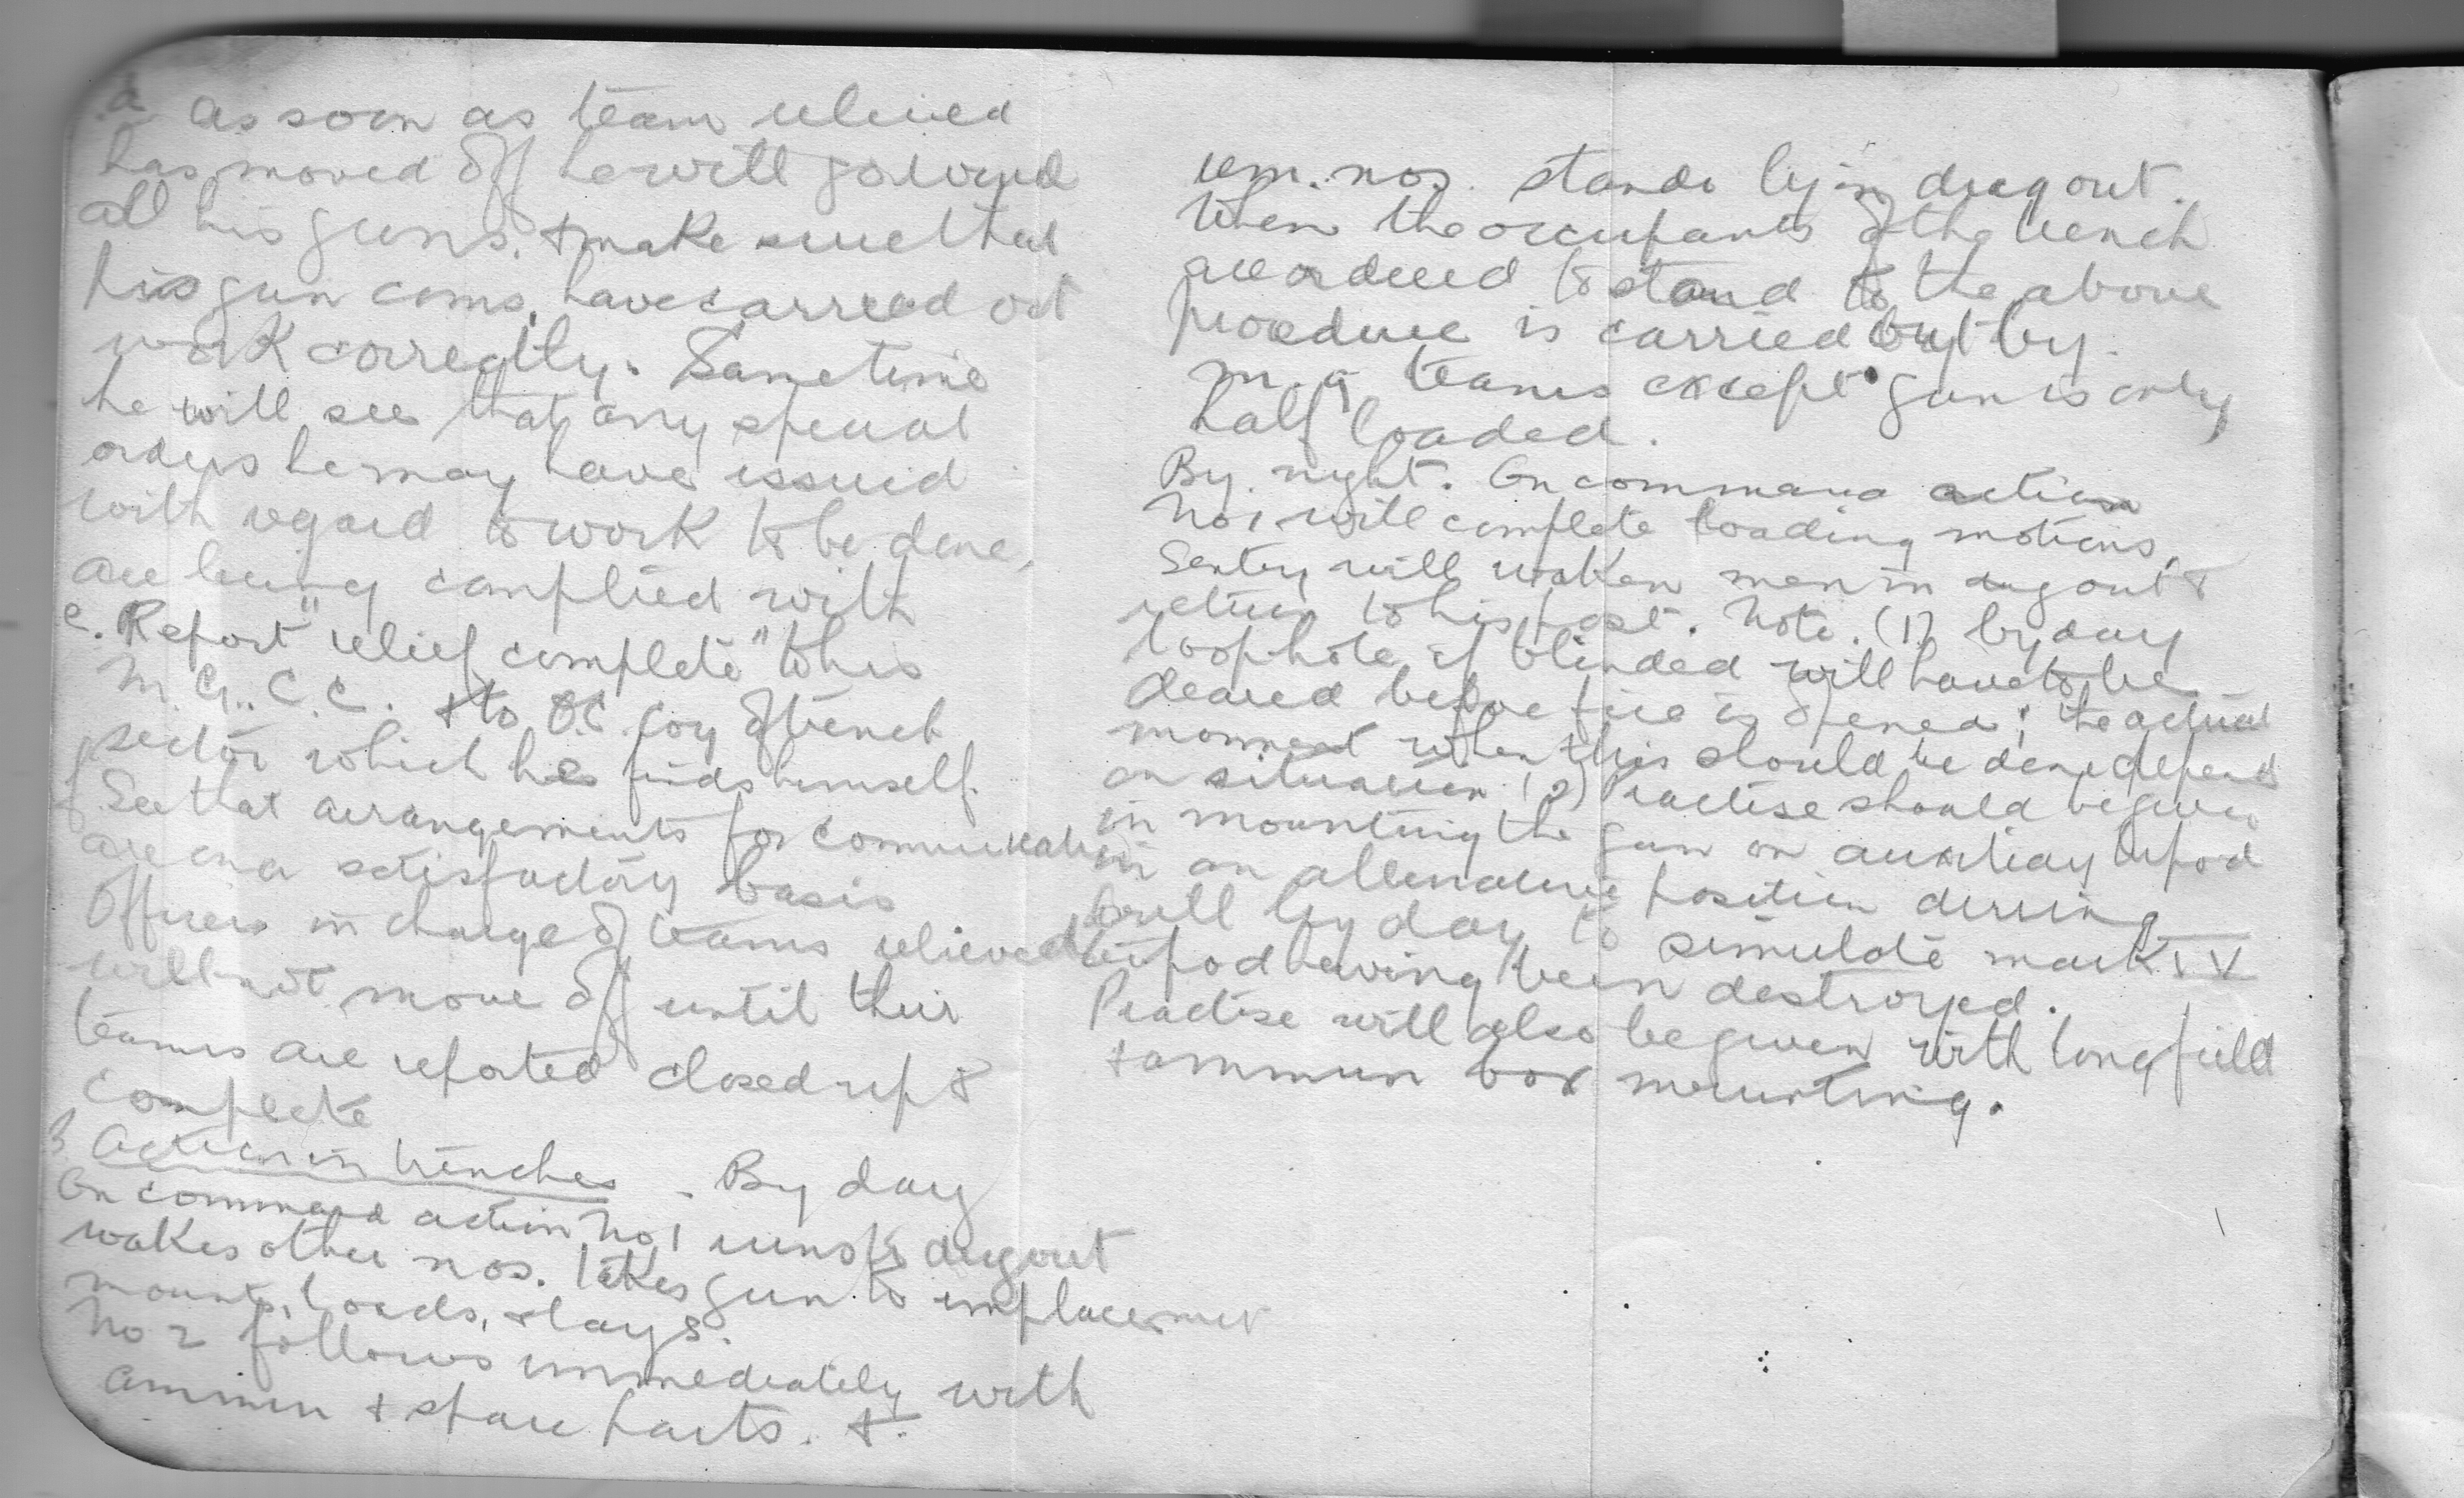 d as soon as team relieved
has moved off he will go round
all his guns. & make sure that
his gun coms. have carried out
work correctly. Same time
he will see that any special
orders he may have issued
with regard to work to be done,
are being complied with
e. Report "relief complete" to his
M.G.. C.C. & to O.C. Coy of trench
sector which he finds himself.
f. See that arrangements for communication
are on a satisfactory basis
Officers in charge of teams relieved
will not move off until their
teams are reported closed up &
complete
3. Action in trenches - By day
On command action No 1 runs to dugout
wakes other nos. takes gun to emplacement
mounts, loads, & lays.
No 2 follows immediately with
ammun & spare parts. &
rem. nos. stands by in dug out.
When the occupants of the trench
are ordered to stand to the above
procedure is carried out by.
m. g teams except gun is only
half loaded.
By night. On command action
No 1 will complete loading motions,
Sentry will waken men in dugout &
return to his post. Note. (1) by day
loophole if blinded will have to be
cleared before fire is opened; the actual
moment when this should be done depends
on situation. (2) Practise should be given
in mounting the gun on auxiliay tripod
in an alternative position during
drill by day to simulate mark IV
tripod having been destroyed.
Practise will also be given with longfield
& ammun box mounting.